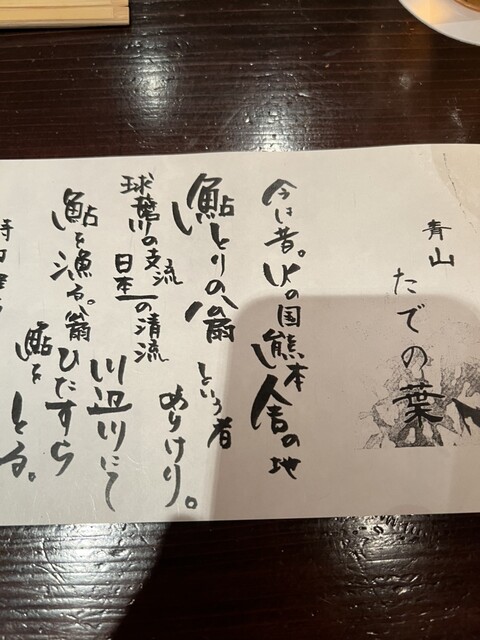 青山
たでの葉
今は昔。火の国熊本人吉の地
鮎とりの翁という者ありけり。
球磨川の支流
日本一の清流
川辺川にて
鮎を漁る。翁ひたすら
鮎をとる。